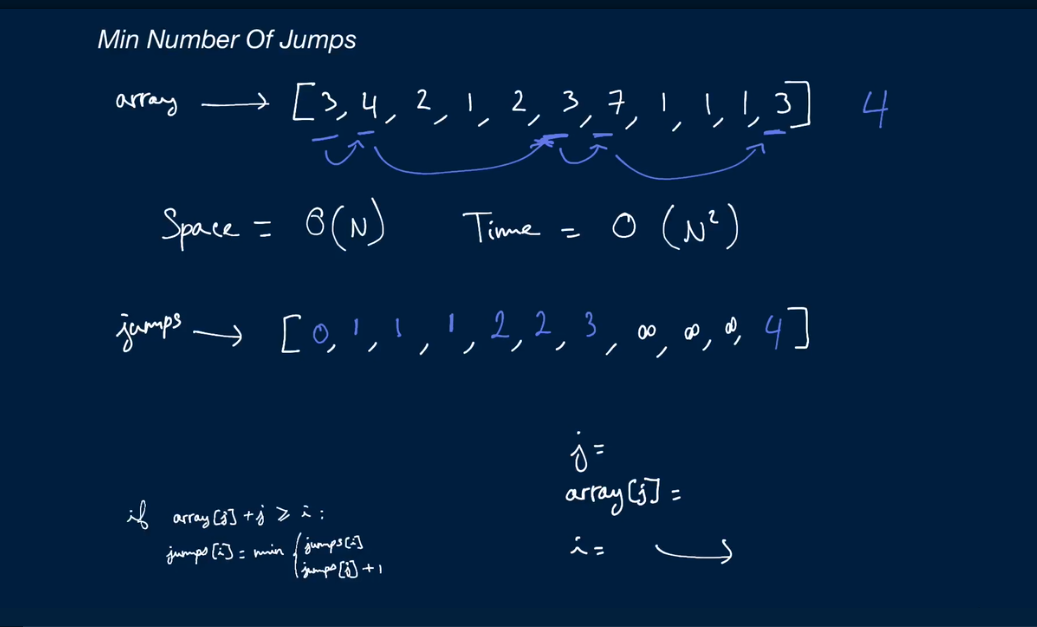 Min Number Of Jumps
array → [3, 4, 2, 1, 2, 3, 7, 1, 1, 1, 3] 4
Space = O(N) Time = O(N²)
jumps → [0, 1, 1, 1, 2, 2, 3, ∞, ∞, ∞, 4]
j =
array[j] =
i = →
if array[j] + j ≥ i :
jumps[i] = min { jumps[i]
jumps[j] + 1